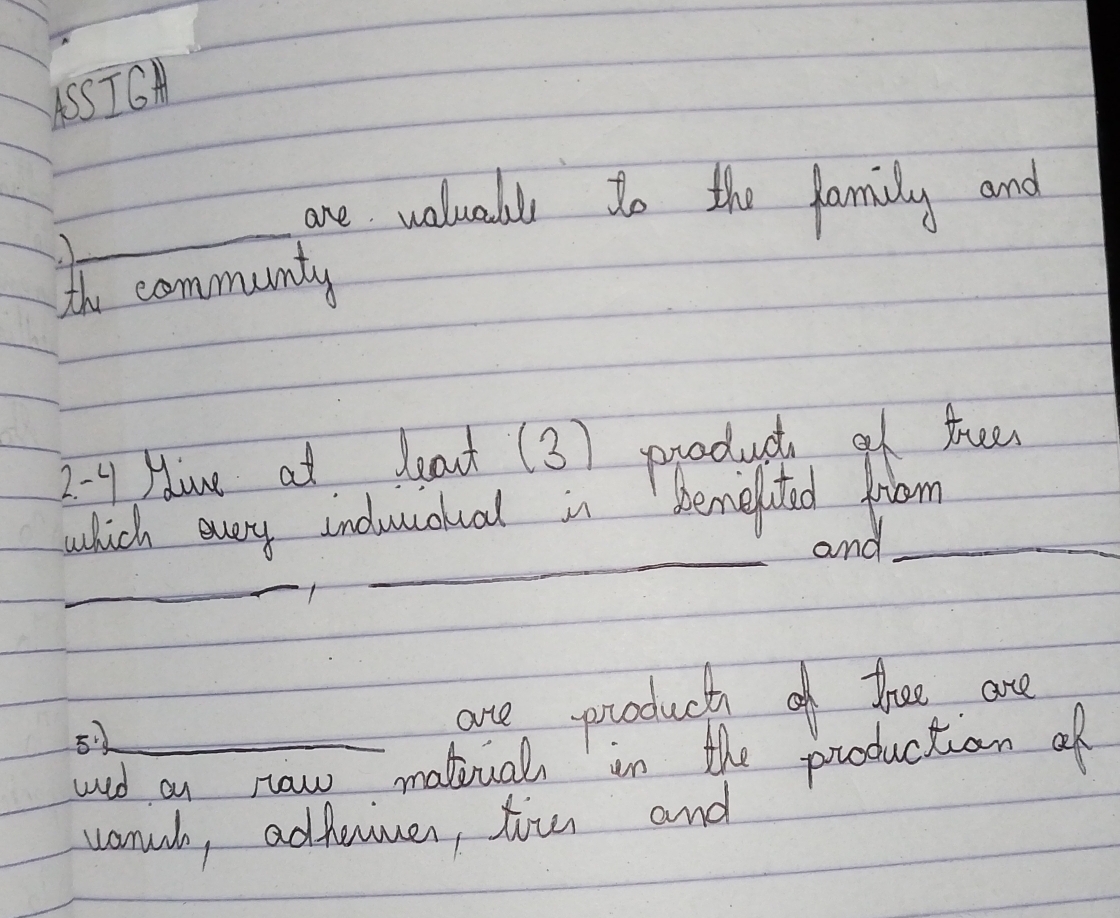 ASSIGN
.) __________ are valuable to the family and
the communty
2-4 Give at least (3) products of trees
which every individual is benefited from
__________, __________ and __________
5.) __________ are products of tree are
used as raw materials in the production of
vanish, adhesives, tires and